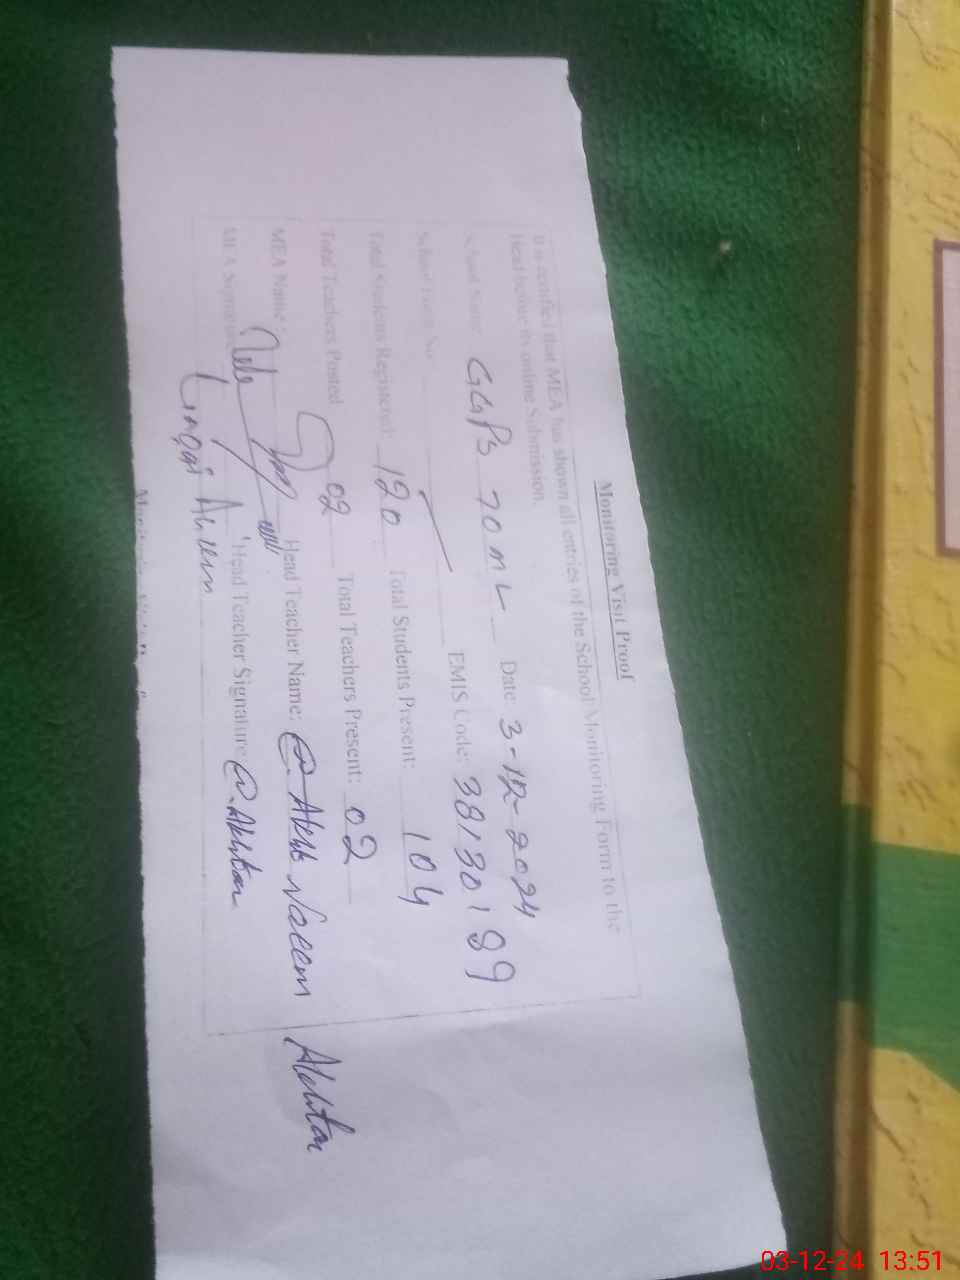 Monitoring Visit Proof
It is certified that MEA has shown all entries of the School Monitoring Form to the
Head before its online Submission.
School Name: GGPS 70 ML Date: 3-12-2024
School Form No. EMIS Code: 38130189
Total Students Registered: 120 Total Students Present: 104
Total Teachers Posted 02 Total Teachers Present: 02
MEA Name: Head Teacher Name: Naeem Akhtar
MEA Signature Head Teacher Signature @.Akhtar
03-12-24 13:51